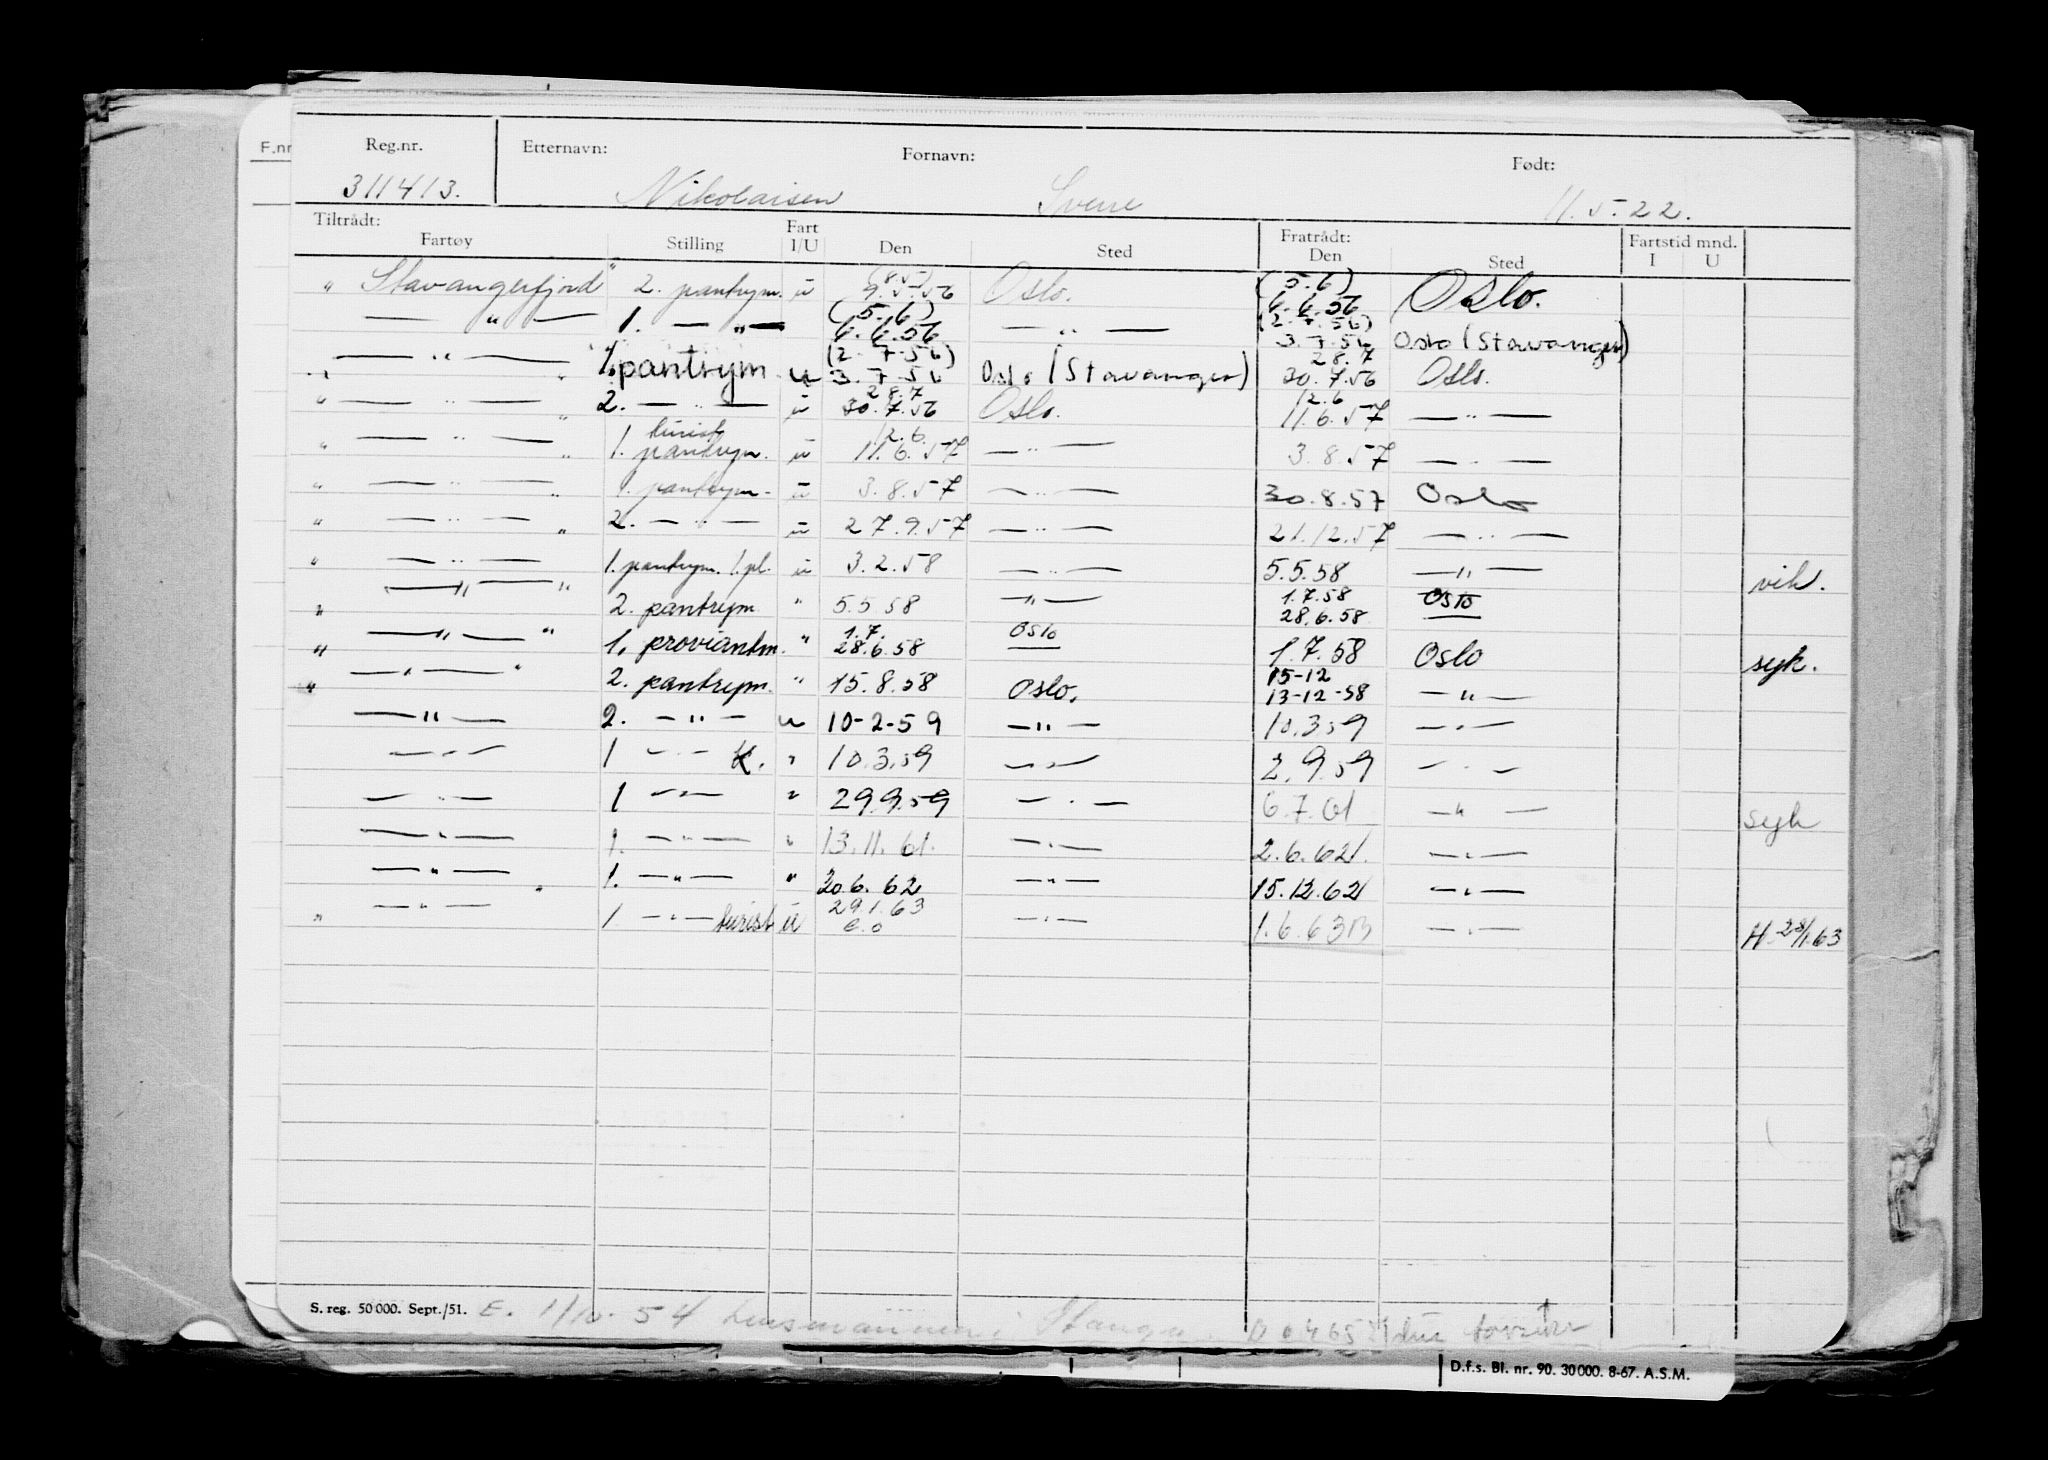 F.nr
Reg.nr. Etternavn: Fornavn: Født:
311413. Nikolaisen Sverre 11.5.22.
Tiltrådt: Fratrådt: Fartstid mnd.
Fartøy Stilling Fart I/U Den Sted Den Sted I U
(8.5) (5.6)
" Stavangerfjord" 2. pantrym. u 9.5.56 Oslo. 6.6.56 Oslo.
(5.6) (2.7.56)
— " — 1. — " — 6.6.56 — " — 3.7.56 Oslo (Stavanger)
(2.7.56) 28.7
" — " — " 1. pantrym u 3.7.56 Oslo (Stavanger) 30.7.56 Oslo.
28.7 12.6
" — " — " 2. — " — u 30.7.56 Oslo. 11.6.57 — " —
turist 12.6.
" — " — " 1. pantrym. u 11.6.57 — " — 3.8.57 — " —
" — " — " 1. pantrym. u 3.8.57 — " — 30.8.57 Oslo
" — " — " 2. — " — u 27.9.57 — " — 21.12.57 — " —
" — " — 1. pantrym. 1.pl. u 3.2.58 — " — 5.5.58 — " — vik.
1.7.58 Oslo
" — " — " 2. pantrym " 5.5.58 — " — 28.6.58 —
1.7. Oslo
" — " — " 1. proviantm. " 28.6.58 — 1.7.58 Oslo syk.
15-12
" — " — " 2. pantrym. " 15.8.58 Oslo. 13-12-58 — " —
— " — 2. — " — u 10-2-59 — " — 10.3.59 — " —
— " — 1 — " — K. " 10.3.59 — " — 2.9.59 — " —
— " — 1 — " — " 29.9.59 — " — 6.7.61 — " — syk
— " — 1. — " — " 13.11.61. — " — 2.6.62. — " —
— " — " 1. — " — " 20.6.62 — " — 15.12.62 — " —
29.1.63
" — " — 1 — " — turist u e.o — " — 1.6.63 — " — H 28/1.63
S. reg. 50 000. Sept./51. E. 1/10-54 lensmannen i Stange
D.f.s. Bl. nr. 90. 30 000. 8-67. A.S.M.